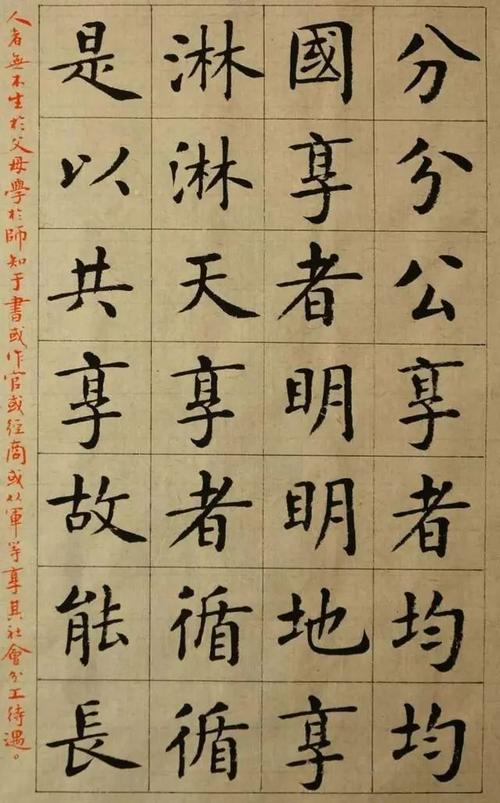 分分公享者均均
國享者明明地享
淋淋天享者循循
是以共享故能長
人者無不生於父母學於師知于書或作官或經商或以軍等享其社會分工待遇。